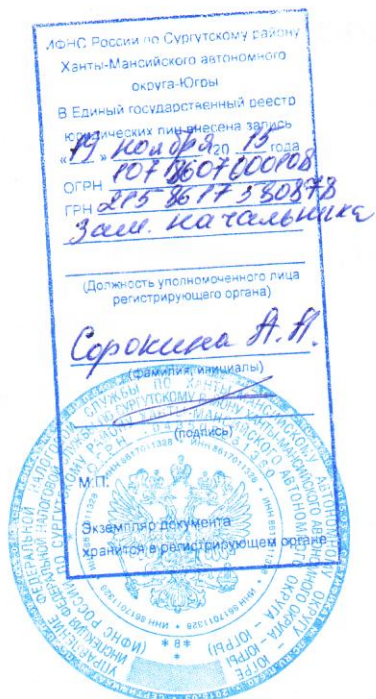 ИФНС России по Сургутскому району
Ханты-Мансийского автономного
округа-Югры
В Единый государственный реестр
юридических лиц внесена запись
«19» ноября 20 15 года
ОГРН 1078607000108
ГРН 2158617330878
Зам. начальника
(Должность уполномоченного лица
регистрирующего органа)
Сорокина А.Н.
(фамилия, инициалы)
(подпись)
М.П.
Экземпляр документа
хранится в регистрирующем органе
УПРАВЛЕНИЕ ФЕДЕРАЛЬНОЙ НАЛОГОВОЙ СЛУЖБЫ ПО ХАНТЫ-МАНСИЙСКОМУ АВТОНОМНОМУ ОКРУГУ - ЮГРЕ
ИНСПЕКЦИЯ ФЕДЕРАЛЬНОЙ НАЛОГОВОЙ СЛУЖБЫ ПО СУРГУТСКОМУ РАЙОНУ ХАНТЫ-МАНСИЙСКОГО АВТОНОМНОГО ОКРУГА - ЮГРЫ
(ИФНС РОССИИ ПО СУРГУТСКОМУ РАЙОНУ ХАНТЫ-МАНСИЙСКОГО АВТОНОМНОГО ОКРУГА - ЮГРЫ)
ИНН 8617011328 * ИНН 8617011328 * ИНН 8617011328
* 8 *